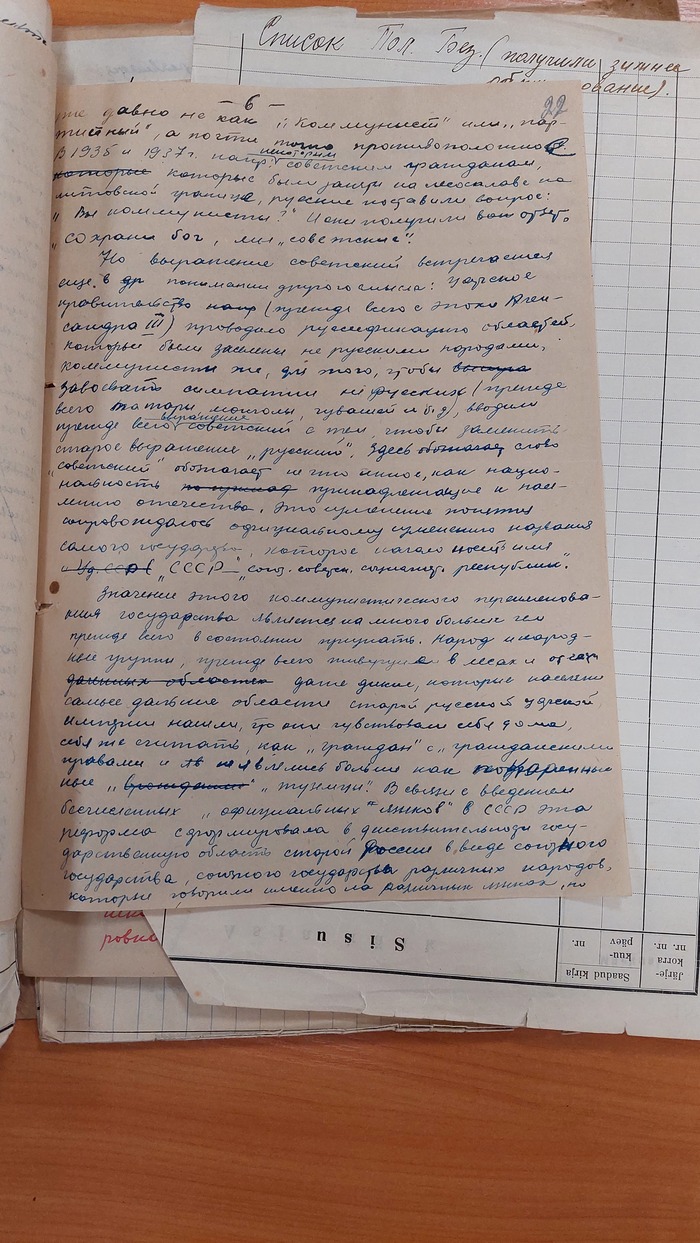 Список Пол. Без. (получили зимнее
обмундирование).
22
– 6 –
уже давно не как „коммунист" или „пар-
тийный", а почти точно противоположное
В 1935 и 1937 г. напр. некоторым советским гражданам,
которые которые были заняты на лесосплаве на
литовской границе, русские поставили вопрос:
„Вы коммунисты?" И они получили вот ответ:
„сохрани бог, мы „советские".
Но выражение советский встречается
еще в др понимании другого смысла: Царское
правительство напр (прежде всего с эпохи Алек-
сандра III) проводало руссификацию областей,
которые были заселены не русскими народами,
коммунисты же, для того, чтобы
завоевать симпатии не русских (прежде
всего татары, монголы, чувашей и), вводили
прежде всего выражение советский с тем, чтобы заменить
старое выражение „русский". Здесь обозначает слово
„советский" обозначает не что иное, как нацио-
нальность принадлежащие к насе-
лению отечества. Это изменение понятия
сопровождалось официальному изменению названия
самого государства, которое начало носить имя
„СССР – „союз. советск. социалист. республик."
Значение этого коммунистического переименова-
ния государства является на много больше чем
прежде всего в состоянии признать. Народ и народ-
ные группы, прежде всего живущие в лесах и
областях даже дикие, которые населяли
самые дальние области старой русской царской
империи нашли, что они чувствовали себя дома,
себя же считать, как „граждан" с „гражданскими
правами и не являлись больше как
ные „ " туземцы". В связи с введением
бесчисленных „официальных" языков" в СССР эта
реформа сформировала в действительности госу-
дарственную область старой России в виде союзного
государства, союзного государства различных народов,
которые говорили именно на различных языках, но
ровка
Sisu
Järje-
korra
nr. nr.
Saadud kirja
kuu-
päev
nr.